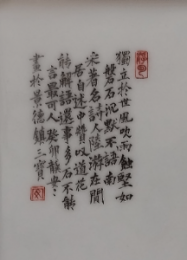 獨立於世風吹雨蝕堅如
磐石沉默不語南
宋著名詩人陸游在閒
居自述中贊嘆道花
解語還事多石不能
言最可人癸卯
畫於景德鎮三寶